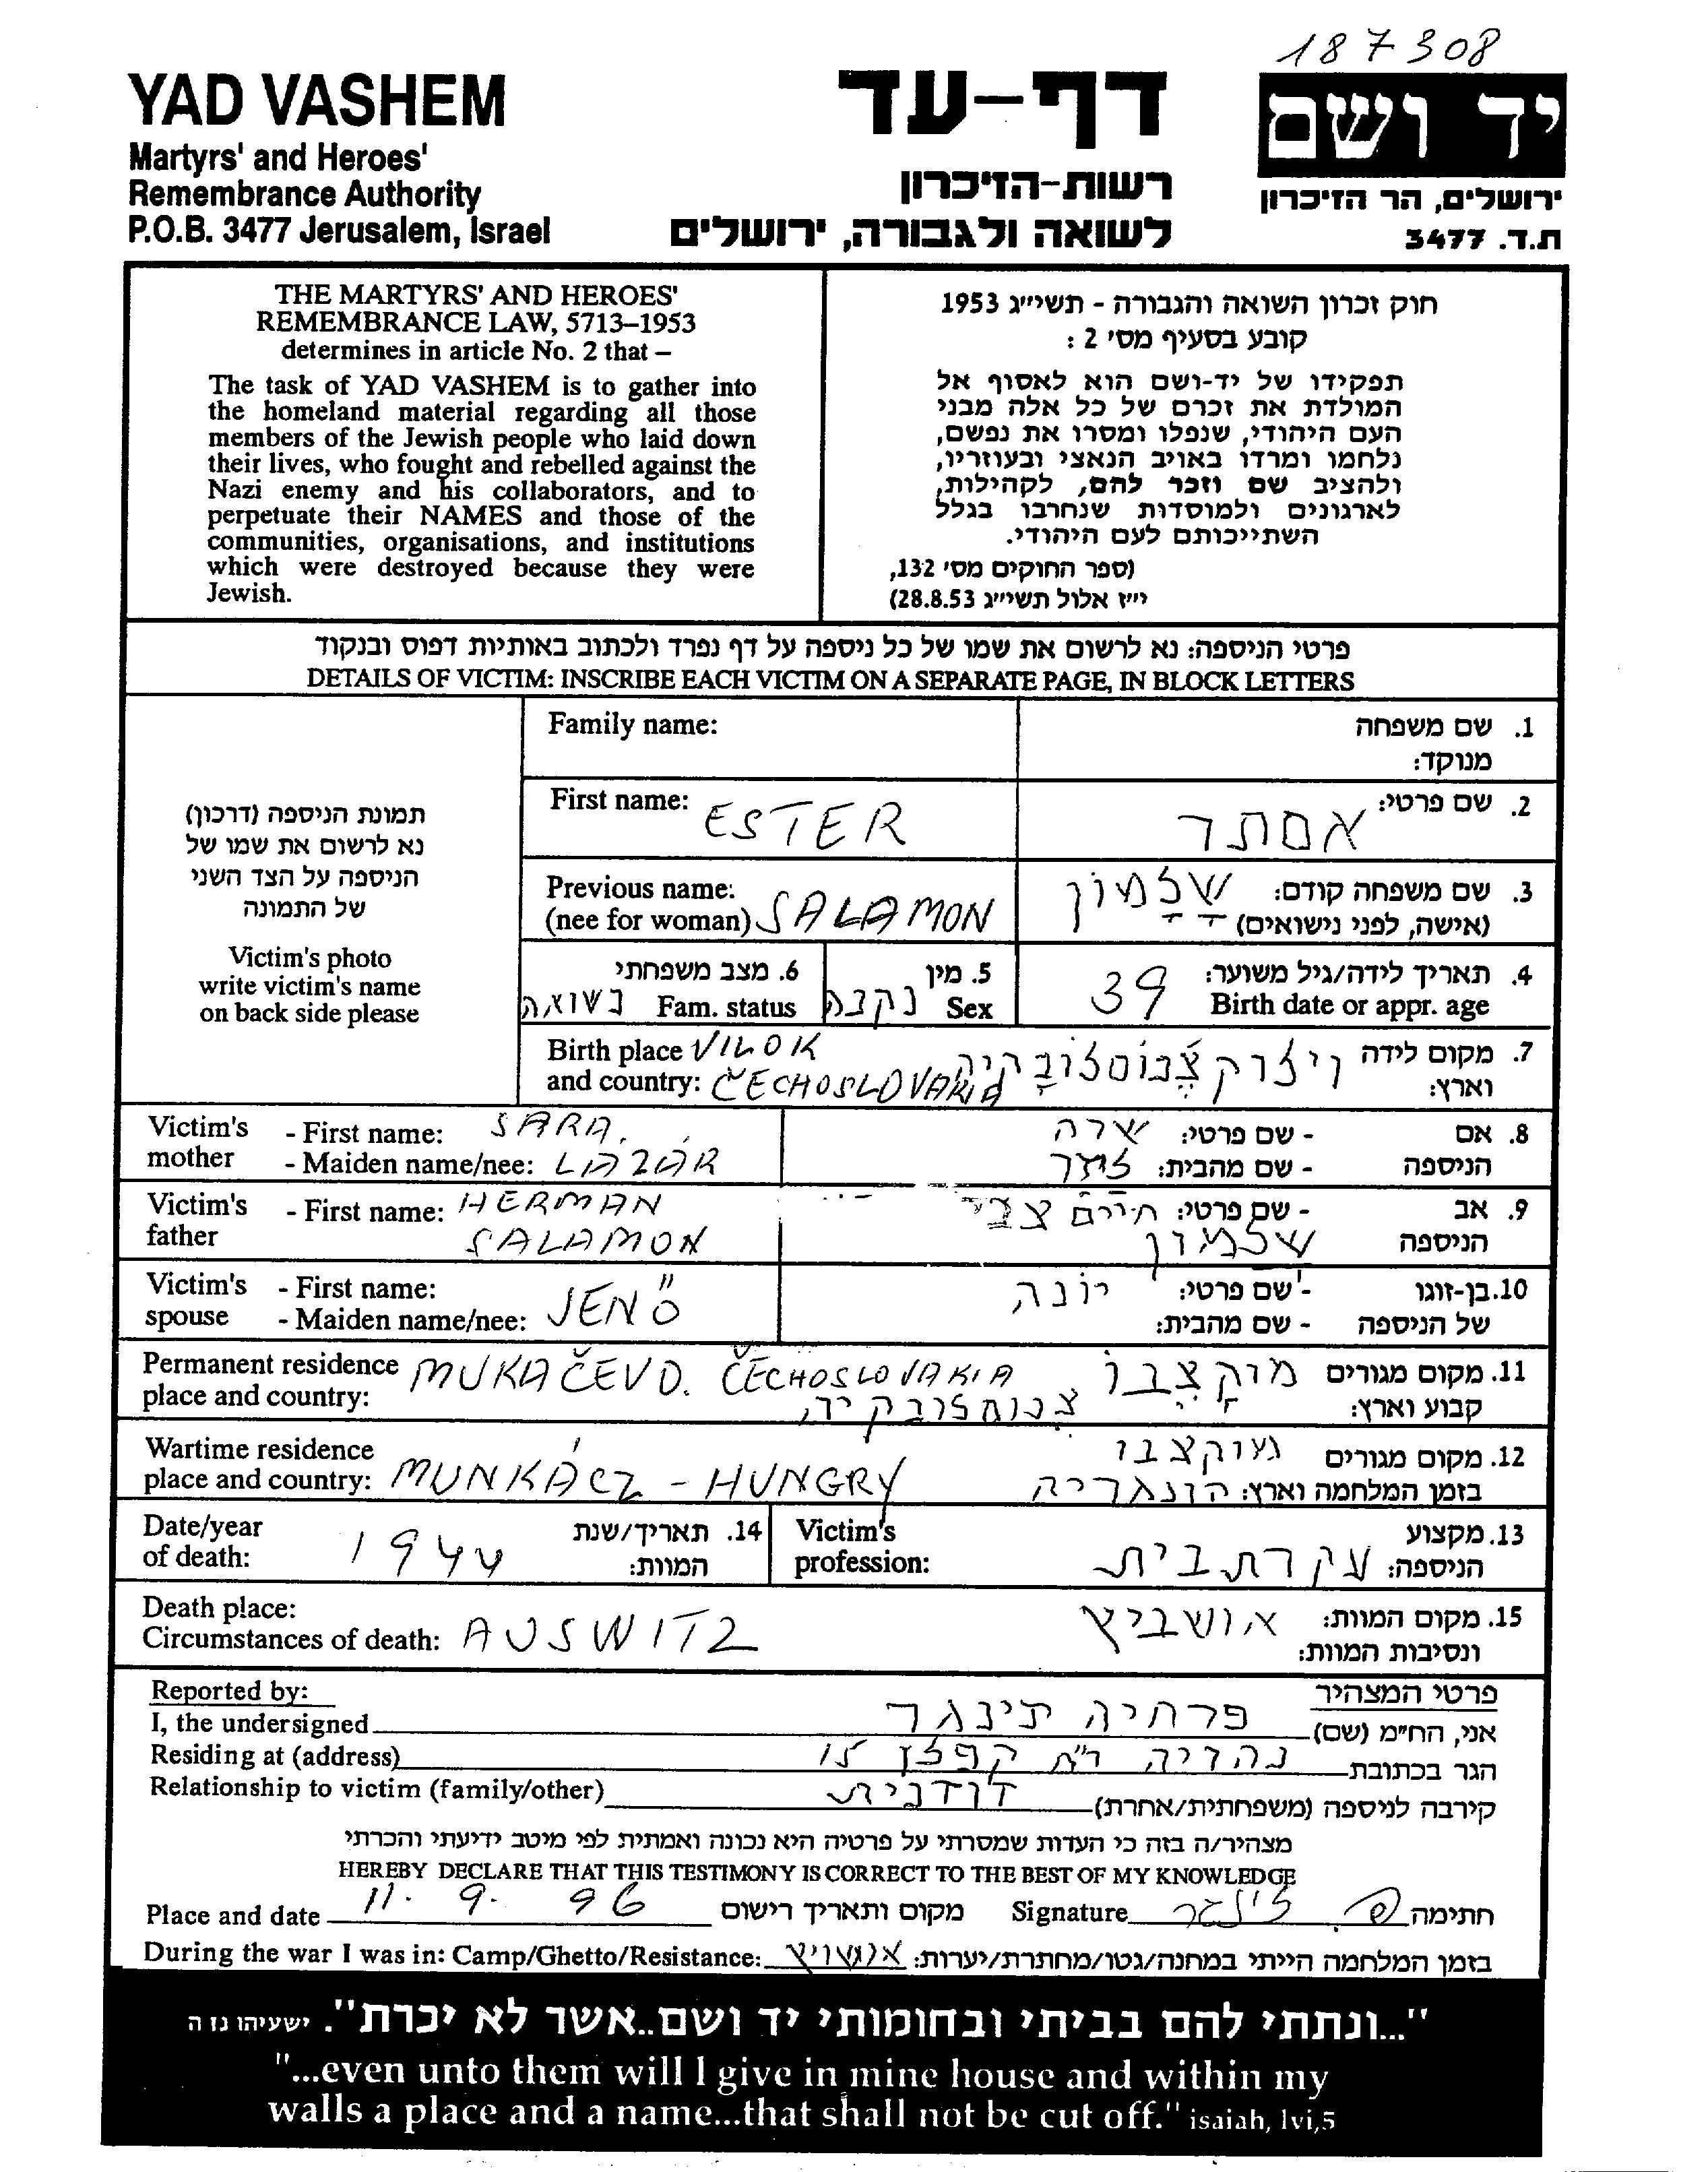 187308
YAD VASHEM
Martyrs' and Heroes'
Remembrance Authority
P.O.B. 3477 Jerusalem, Israel
דף-עד
רשות-הזיכרון
לשואה ולגבורה, ירושלים
יד ושם
ירושלים, הר הזיכרון
ת.ד. 3477
THE MARTYRS' AND HEROES'
REMEMBRANCE LAW, 5713–1953
determines in article No. 2 that –
The task of YAD VASHEM is to gather into
the homeland material regarding all those
members of the Jewish people who laid down
their lives, who fought and rebelled against the
Nazi enemy and his collaborators, and to
perpetuate their NAMES and those of the
communities, organisations, and institutions
which were destroyed because they were
Jewish.
חוק זכרון השואה והגבורה - תשי״ג 1953
קובע בסעיף מס׳ 2 :
תפקידו של יד-ושם הוא לאסוף אל
המולדת את זכרם של כל אלה מבני
העם היהודי, שנפלו ומסרו את נפשם,
נלחמו ומרדו באויב הנאצי ובעוזריו,
ולהציב שם וזכר להם, לקהילות,
לארגונים ולמוסדות שנחרבו בגלל
השתייכותם לעם היהודי.
(ספר החוקים מס׳ 132,
י״ז אלול תשי״ג 28.8.53)
פרטי הניספה: נא לרשום את שמו של כל ניספה על דף נפרד ולכתוב באותיות דפוס ובנקוד
DETAILS OF VICTIM: INSCRIBE EACH VICTIM ON A SEPARATE PAGE, IN BLOCK LETTERS
תמונת הניספה (דרכון)
נא לרשום את שמו של
הניספה על הצד השני
של התמונה
Victim's photo
write victim's name
on back side please
Family name:
1. שם משפחה
מנוקד:
First name: ESTER
2. שם פרטי: אסתר
Previous name:
(nee for woman) SALAMON
3. שם משפחה קודם: שלמון
(אישה, לפני נישואים)
4. תאריך לידה/גיל משוער: 39
Birth date or appr. age
5. מין
Sex נקבה
6. מצב משפחתי
Fam. status נשואה
Birth place VILOK
and country: ČECHOSLOVAKIA
7. מקום לידה וילוק צ'כוסלובקיה
וארץ:
Victim's - First name: SARA
mother - Maiden name/nee: LAZÁR
8. אם - שם פרטי: שרה
הניספה - שם מהבית: לזר
Victim's - First name: HERMAN
father SALAMON
9. אב - שם פרטי: חיים צבי
הניספה שלמון
Victim's - First name:
spouse - Maiden name/nee: JENÖ
10. בן-זוגו - שם פרטי: יונה
של הניספה - שם מהבית:
Permanent residence MUKAČEVO. ČECHOSLOVAKIA
place and country:
11. מקום מגורים מוקצבו
קבוע וארץ: צכוסלובקיה
Wartime residence
place and country: MUNKÁCZ - HUNGRY
12. מקום מגורים מוקצבו
בזמן המלחמה וארץ: הונגריה
Date/year
of death: 1944
14. תאריך/שנת
המוות:
Victim's
profession:
13. מקצוע
הניספה: עקרת בית
Death place:
Circumstances of death: AUSWITZ
15. מקום המוות: אושביץ
ונסיבות המוות:
Reported by:
פרטי המצהיר
I, the undersigned פרחיה תינגר אני, הח״מ (שם)
Residing at (address) נהריה קפלן 15 הגר בכתובת
Relationship to victim (family/other) דודנית קירבה לניספה (משפחתית/אחרת)
מצהיר/ה בזה כי העדות שמסרתי על פרטיה היא נכונה ואמתית לפי מיטב ידיעתי והכרתי
HEREBY DECLARE THAT THIS TESTIMONY IS CORRECT TO THE BEST OF MY KNOWLEDGE
Place and date 11. 9. 96 מקום ותאריך רישום Signature חתימה
During the war I was in: Camp/Ghetto/Resistance: אושויץ בזמן המלחמה הייתי במחנה/גטו/מחתרת/יערות:
"...ונתתי להם בביתי ובחומותי יד ושם..אשר לא יכרת". ישעיהו נז ה
"...even unto them will I give in mine house and within my
walls a place and a name...that shall not be cut off." isaiah, lvi,5